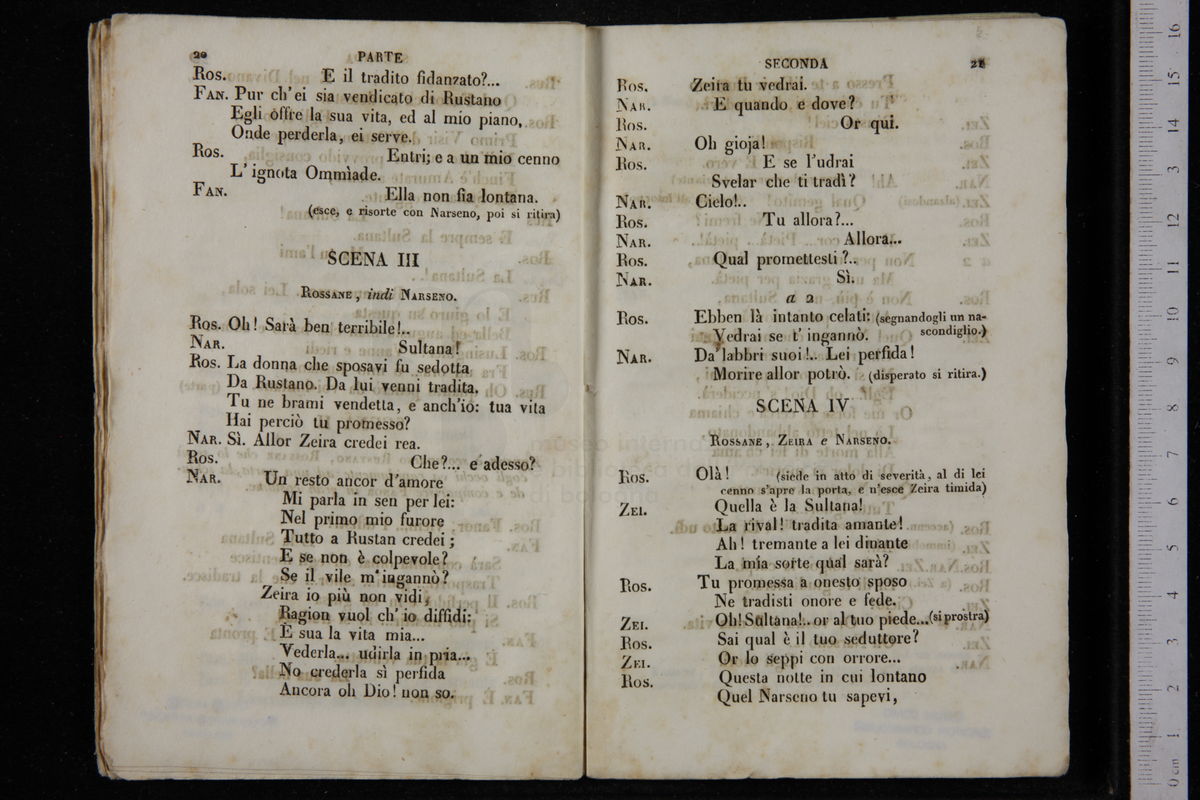 20 PARTE
Ros. E il tradito fidanzato?...
Fan. Pur ch'ei sia vendicato di Rustano
Egli offre la sua vita, ed al mio piano,
Onde perderla, ei serve.
Ros. Entri; e a un mio cenno
L'ignota Ommìade.
Fan. Ella non fia lontana.
(esce, e risorte con Narseno, poi si ritira)
SCENA III
Rossane, indi Narseno.
Ros. Oh! Sarà ben terribile!..
Nar. Sultana!
Ros. La donna che sposavi fu sedotta
Da Rustano. Da lui venni tradita.
Tu ne brami vendetta, e anch'io: tua vita
Hai perciò tu promesso?
Nar. Sì. Allor Zeira credei rea.
Ros. Che?... e adesso?
Nar. Un resto ancor d'amore
Mi parla in sen per lei:
Nel primo mio furore
Tutto a Rustan credei;
E se non è colpevole?
Se il vile m'ingannò?
Zeira io più non vidi,
Ragion vuol ch'io diffidi:
È sua la vita mia...
Vederla... udirla in pria...
No crederla sì perfida
Ancora oh Dio! non so.
SECONDA 21
Ros. Zeira tu vedrai.
Nar. E quando e dove?
Ros. Or qui.
Nar. Oh gioja!
Ros. E se l'udrai
Svelar che ti tradì?
Nar. Cielo!..
Ros. Tu allora?...
Nar. Allora...
Ros. Qual promettesti?..
Nar. Sì.
a 2
Ros. Ebben là intanto celati: (segnandogli un na-
Vedrai se t'ingannò. scondiglio.)
Nar. Da'labbri suoi!.. Lei perfida!
Morire allor potrò. (disperato si ritira.)
SCENA IV
Rossane, Zeira e Narseno.
Ros. Olà! (siede in atto di severità, al di lei
cenno s'apre la porta, e n'esce Zeira timida)
Zei. Quella è la Sultana!
La rival! tradita amante!
Ah! tremante a lei dinante
La mia sorte qual sarà?
Ros. Tu promessa a onesto sposo
Ne tradisti onore e fede.
Zei. Oh! Sultana!.. or al tuo piede...(si prostra)
Ros. Sai qual è il tuo seduttore?
Zei. Or lo seppi con orrore...
Ros. Questa notte in cui lontano
Quel Narseno tu sapevi,